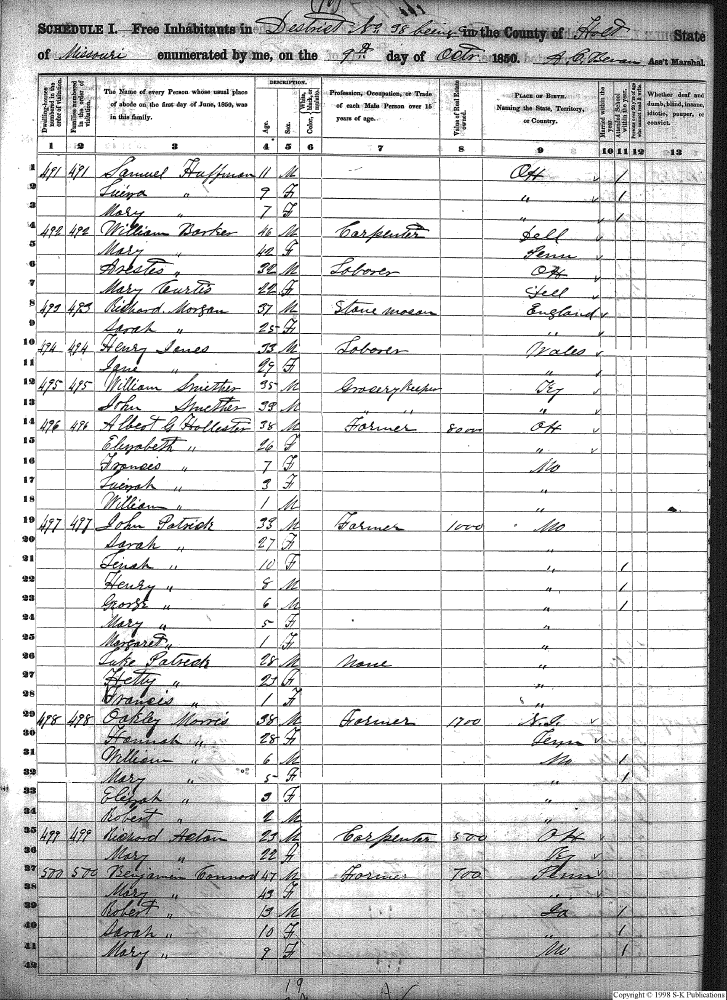 SCHEDULE I. Free Inhabitants in District No. 38 being in the County of Holt State
of Missouri enumerated by me, on the 9th day of Octr 1850. Ass't Marshal.
Dwelling-house numbered in the order of visitation.
Families numbered in the order of visitation.
The Name of every Person whose usual place of abode on the first day of June, 1850, was in this family.
DESCRIPTION.
Age.
Sex.
Color, White, black, or mulatto.
Profession, Occupation, or Trade of each Male Person over 15 years of age.
Value of Real Estate owned.
PLACE OF BIRTH. Naming the State, Territory, or Country.
Married within the year.
Attended School within the year.
Whether deaf and dumb, blind, insane, idiotic, pauper, or convict.
1 2 3 4 5 6 7 8 9 10 11 12 13
1 491 491 Samuel Huffman 11 M OH /
2 " 9 F " /
3 Mary 7 F " /
4 492 492 William Barker 46 M Carpenter
5 Mary " 42 F Penn
6 Arestes " 32 M Laborer OH
7 Mary Curtis 22 F
8 493 493 Richard Morgan 37 M Stone mason England
9 Sarah " 25 F "
10 494 494 Henry Jones 33 M Laborer Wales
11 Jane " 29 F "
12 495 495 William Smether 35 M Grocery Keeper Ky
13 John Smether 33 M " " "
14 496 496 Albert G Hollester 38 M Farmer 8000 OH
15 Elizabeth " 26 F "
16 Francis " 7 F Mo
17 " 3 F "
18 William " 1 M "
19 497 497 John Patrick 33 M Farmer 1000 Mo
20 Sarah " 27 F "
21 " 10 F " /
22 Henry " 8 M " /
23 George " 6 M " /
24 Mary " 5 F "
25 Margaret " 1 F "
26 Luke Patrick 28 M None "
27 Hetty " 23 F "
28 Francis " 1 F "
29 498 498 Oakley Morris 38 M Farmer 1700 N.J.
30 Hannah " 28 F Tenn
31 William " 6 M Mo /
32 Mary " 5 F " /
33 Elizah " 3 F "
34 Robert " 2 M "
35 499 499 Richard Acton 23 M Carpenter 500 OH
36 Mary " 22 F Ky
37 500 500 Benjamin Connard 47 M Farmer 700 Penn
38 Mary " 43 F "
39 Robert " 13 M Ia /
40 Sarah " 10 F " /
41 Mary " 9 F Mo /
42
Copyright © 1998 S-K Publications